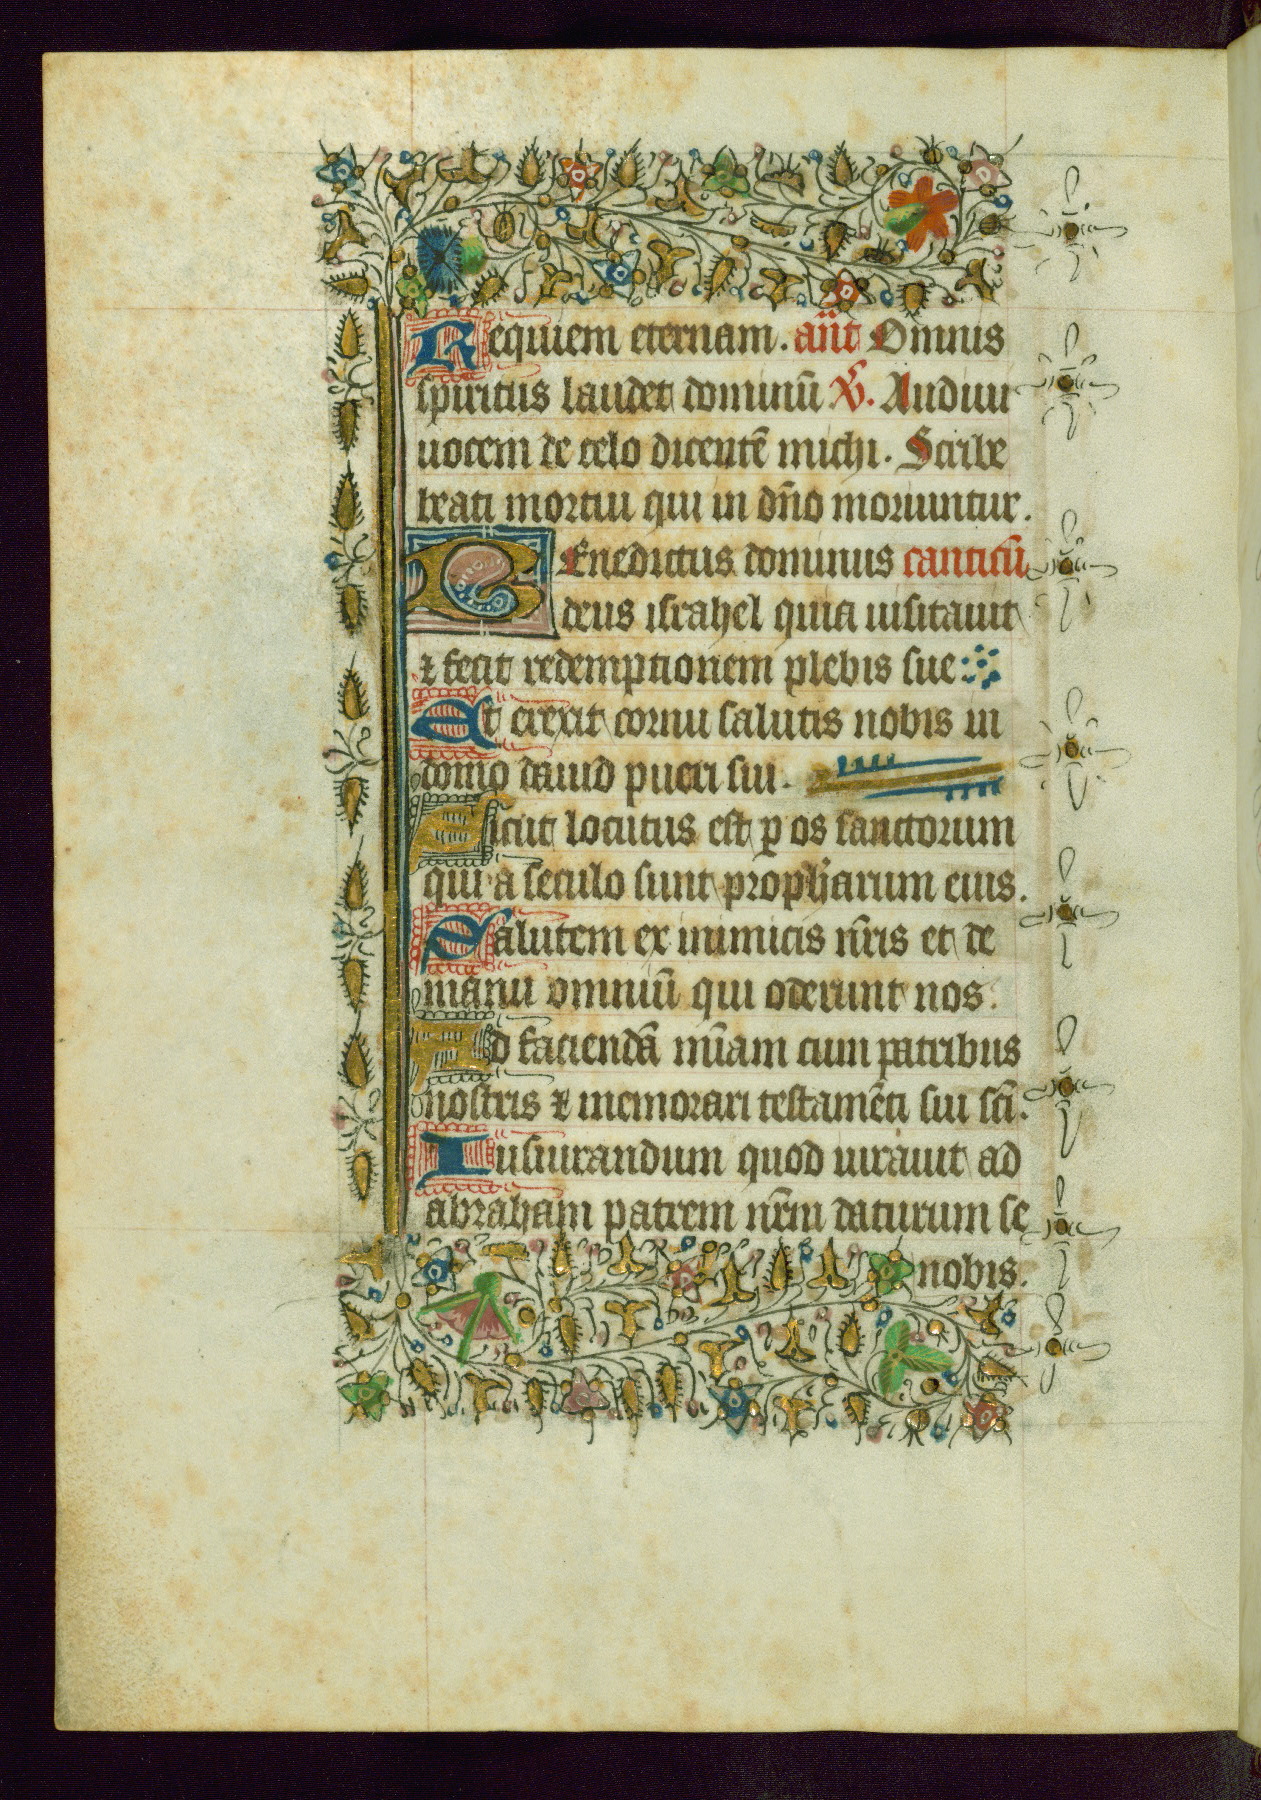 Requiem eternam. añt Omnis
spiritus laudet dominū ℣. Audiui
uocem de celo dicentē michi. Scribe
beati mortui qui in dño moriuntur.
BEnedictus dominus canticū
deus israhel quia uisitauit
⁊ fecit redemptionem plebis sue
Et erexit cornu salutis nobis in
domo dauid pueri sui.
Sicut locutus est ꝑ os sanctorum
qui a seculo sunt propharum eius.
Salutem ex inimicis nr̄is et de
manu omniū qui oderunt nos.
Ad faciendā mīam cum patribus
nostris ⁊ memorari testamēti sui sc̄i.
Iusiurandum quod iurauit ad
abraham patrem nr̄m daturum se
nobis.